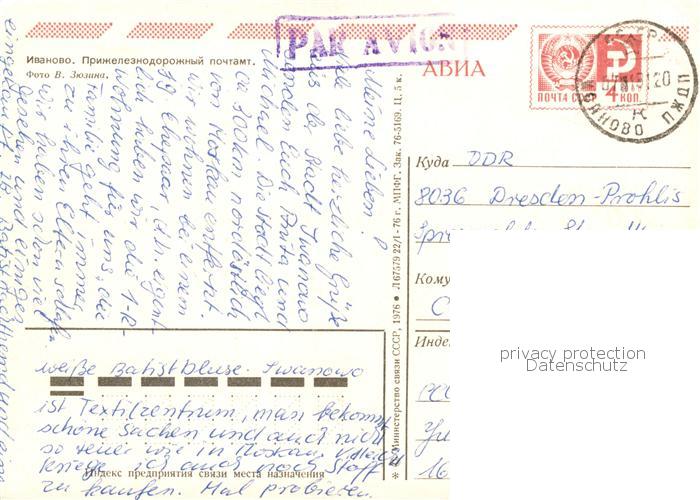 PAR AVION
Иваново. Прижелезнодорожный почтамт.
Фото В. Зюзина.
АВИА
ПОЧТА СССР
4 КОП.
ИВАНОВО ПЖДП
Meine Lieben!
liebe herzliche Grüße
aus der Stadt Iwanowo
senden Euch Anita und
Michael. Die Stadt liegt
ca 300 km nordöstlich
von Moskau entfernt.
Wir wohnen bei einem
Ehepaar, d.h. eigentl.
haben wir die 1-R-
Wohnung für uns, die
Familie geht immer
zu ihren Eltern schlafen.
Wir haben schon viel
gesehen und einiges
eingekauft, z.B. Batisthemd und eine
weiße Batistbluse. Iwanowo
ist Textilzentrum, man bekommt
schöne Sachen und auch nicht
so teuer wie in Moskau. Vielleicht
kriege ich auch noch Stoff
zu kaufen. Mal probieren.
Индекс предприятия связи места назначения
* Министерство связи СССР, 1976 * Л 67579 22/I-76 г. МПФГ. Зак. 76-5169. Ц. 5 к.
Куда DDR
8036 Dresden-Prohlis
Кому
Инде
16
privacy protection
Datenschutz